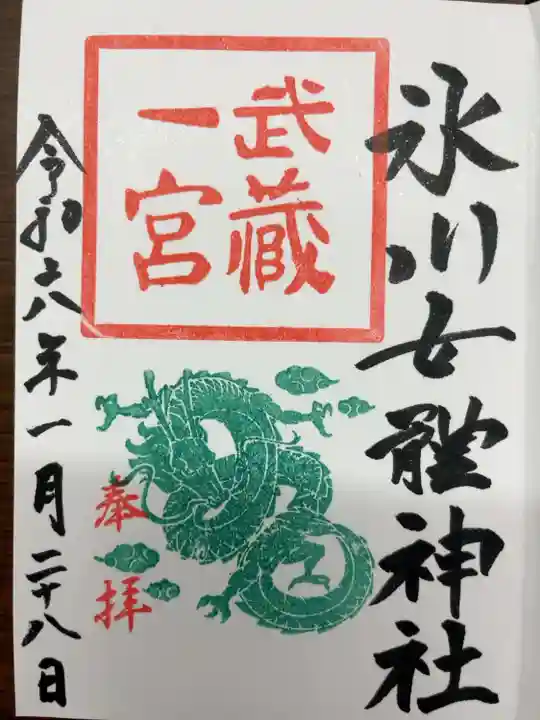 氷川女體神社
武蔵
一宮
奉拝
令和六年一月二十八日